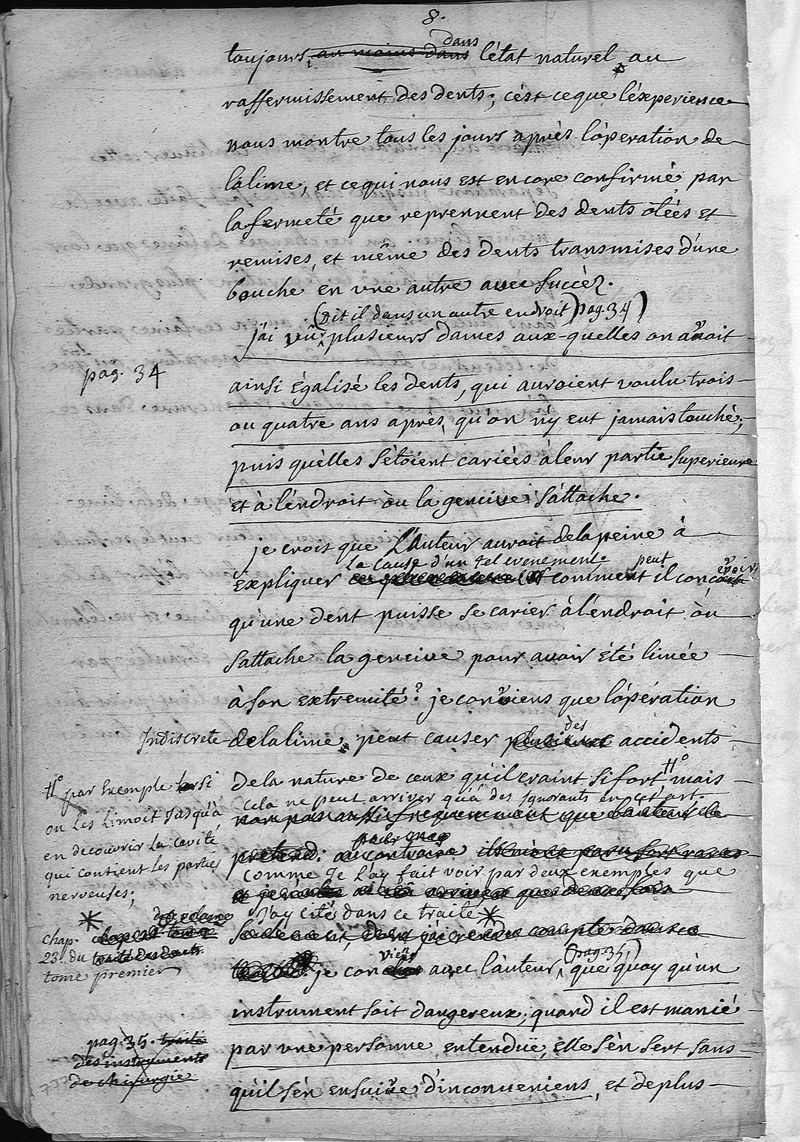 8.
toujours, au moins dans dans l'état naturel, au
raffermissement des dents; c'est ce que l'éxperience
nous montre tous les jours après l'operation de
la lime, et ce qui nous est encore confirmé, par
la fermeté que reprennent des dents otées et
remises, et même des dents transmises d'une
bouche en une autre avec succéz.
(Dit il dans un autre endroit) pag. 34)
j'ai vû plusieurs dames aux-quelles on avoit
pag. 34
ainsi égalisé les dents, qui auroient voulu trois
ou quatre ans aprés, qu'on n'y eut jamais touché;
puis qu'elles s'étoient cariées à leur partie superieure
et à l'endroit où la gencive s'attache.
je crois que L'auteur auroit de la peine à
la cause d'un tel evenement
expliquer et comment il peut
qu'une dent puisse se carier à l'endroit où
s'attache la gencive pour avoir été limée
à son extremité? je conviens que l'opération
Indiscrete de la lime, peut causer des accidents
de la nature de ceux qu'il craint si fort mais
cela ne peut arriver qu'à des Ignorants en cet art.
non pas aussi frequemment que l'auteur le
pretend: au contraire
comme je l'ay fait voir par deux exemples que
j'ay cités dans ce traité
je conviens avec l'auteur, (pag. 35,) que quoy qu'un
instrument soit dangereux, quand il est manié
par une personne entenduë, elle s'en sert sans
qu'il s'en ensuive d'inconveniens, et de plus
par Exemple si
on les limoit jusqu'à
en decouvrir la cavité
qui contient les parties
nerveuses;
chap.
23. du
tome premier
pag. 35. traité
des instruments
de chirurgie